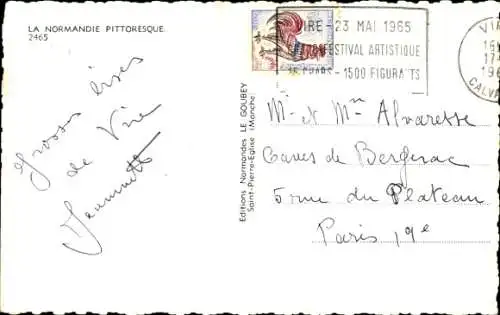 LA NORMANDIE PITTORESQUE
2465
Grosses bises
de Vire
Jeannette
Editions Normandes LE GOUBEY
Saint-Pierre-Eglise (Manche)
VIRE - 23 MAI 1965
FESTIVAL ARTISTIQUE
CHARS - 1500 FIGURANTS
CALVA
Mr et Mme Alvaresse
Caves de Bergerac
5 rue du Plateau
Paris 19e